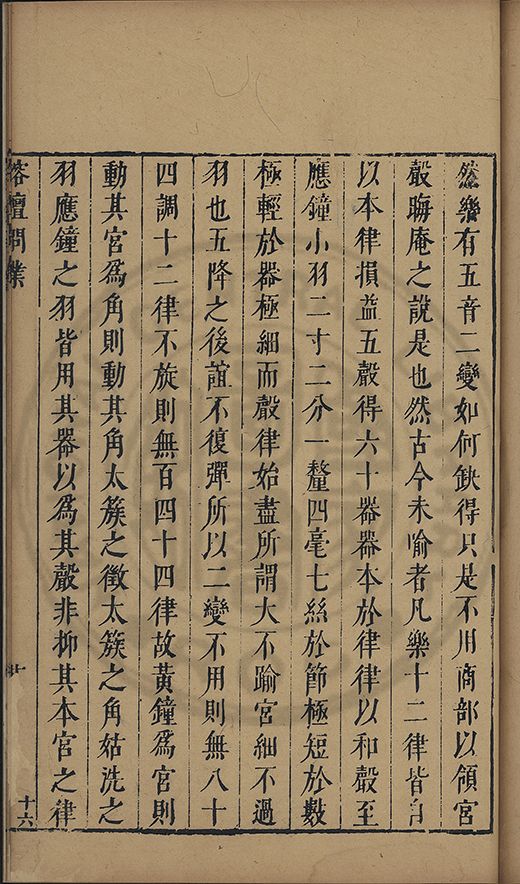 然樂有五音二變如何缺得只是不用商部以領宮
聲晦庵之說是也然古今未喻者凡樂十二律皆自
以本律損益五聲得六十器器本於律律以和聲至
應鐘小羽二寸二分一釐四毫七絲於節極短於數
極輕於器極細而聲律始盡所謂大不踰宮細不過
羽也五降之後誼不復彈所以二變不用則無八十
四調十二律不旋則無百四十四律故黃鐘爲宮則
動其宮爲角則動其角太簇之徵太簇之角姑洗之
羽應鐘之羽皆用其器以爲其聲非抑其本宮之律
榕壇問業
十六